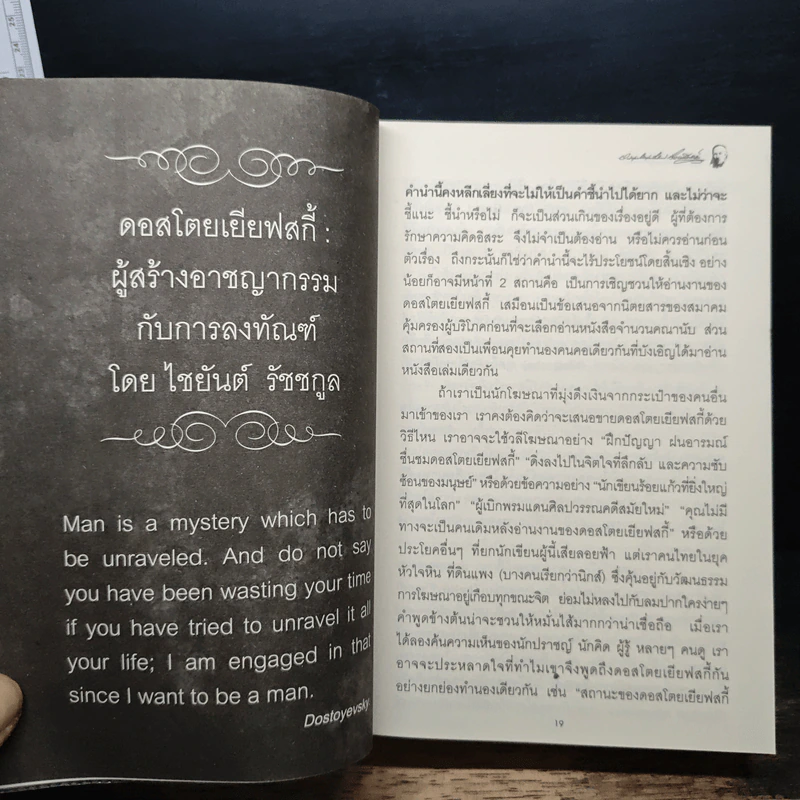 ดอสโตยเยียฟสกี้ :
ผู้สร้างอาชญากรรม
กับการลงทัณฑ์
โดย ไชยันต์ รัชชกูล
Man is a mystery which has to
be unraveled. And do not say
you have been wasting your time
if you have tried to unravel it all
your life; I am engaged in that
since I want to be a man.
Dostoyevsky
คำนำนี้คงหลีกเลี่ยงที่จะไม่ให้เป็นคำชี้นำไปได้ยาก และไม่ว่าจะ
ชี้แนะ ชี้นำหรือไม่ ก็จะเป็นส่วนเกินของเรื่องอยู่ดี ผู้ที่ต้องการ
รักษาความคิดอิสระ จึงไม่จำเป็นต้องอ่าน หรือไม่ควรอ่านก่อน
ตัวเรื่อง ถึงกระนั้นก็ใช่ว่าคำนำนี้จะไร้ประโยชน์โดยสิ้นเชิง อย่าง
น้อยก็อาจมีหน้าที่ 2 สถานคือ เป็นการเชิญชวนให้อ่านงานของ
ดอสโตยเยียฟสกี้ เสมือนเป็นข้อเสนอจากนิตยสารของสมาคม
คุ้มครองผู้บริโภคก่อนที่จะเลือกอ่านหนังสือจำนวนคณานับ ส่วน
สถานที่สองเป็นเพื่อนคุยทำนองคนคอเดียวกันที่บังเอิญได้มาอ่าน
หนังสือเล่มเดียวกัน
ถ้าเราเป็นนักโฆษณาที่มุ่งดึงเงินจากกระเป๋าของคนอื่น
มาเข้าของเรา เราคงต้องคิดว่าจะเสนอขายดอสโตยเยียฟสกี้ด้วย
วิธีไหน เราอาจจะใช้วลีโฆษณาอย่าง “ฝึกปัญญา ฝนอารมณ์
ชื่นชมดอสโตยเยียฟสกี้” “ดิ่งลงไปในจิตใจที่ลึกลับ และความซับ
ซ้อนของมนุษย์” หรือด้วยข้อความอย่าง “นักเขียนร้อยแก้วที่ยิ่งใหญ่
ที่สุดในโลก” “ผู้เบิกพรมแดนศิลปวรรณคดีสมัยใหม่” “คุณไม่มี
ทางจะเป็นคนเดิมหลังอ่านงานของดอสโตยเยียฟสกี้” หรือด้วย
ประโยคอื่นๆ ที่ยกนักเขียนผู้นี้เสียลอยฟ้า แต่เราคนไทยในยุค
หัวใจหิน ที่ดินแพง (บางคนเรียกว่านิกส์) ซึ่งคุ้นอยู่กับวัฒนธรรม
การโฆษณาอยู่เกือบทุกขณะจิต ย่อมไม่หลงไปกับลมปากใครง่ายๆ
คำพูดข้างต้นน่าจะชวนให้หมั่นไส้มากกว่าน่าเชื่อถือ เมื่อเรา
ได้ลองค้นความเห็นของนักปราชญ์ นักคิด ผู้รู้ หลายๆ คนดู เรา
อาจจะประหลาดใจที่ทำไมเขาจึงพูดถึงดอสโตยเยียฟสกี้กัน
อย่างยกย่องทำนองเดียวกัน เช่น “สถานะของดอสโตยเยียฟสกี้
19